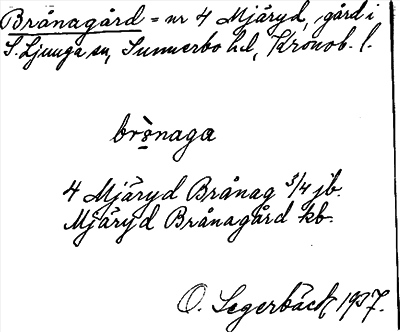 Brånagård = nr 4 Mjäryd, gård i
S. Ljunga sn, Sunnerbo hd, Kronob. l.
brò̱naga
4 Mjäryd Brånag 3/4 jb.
Mjäryd Brånagård kb.
O. Segerbäck 1937.